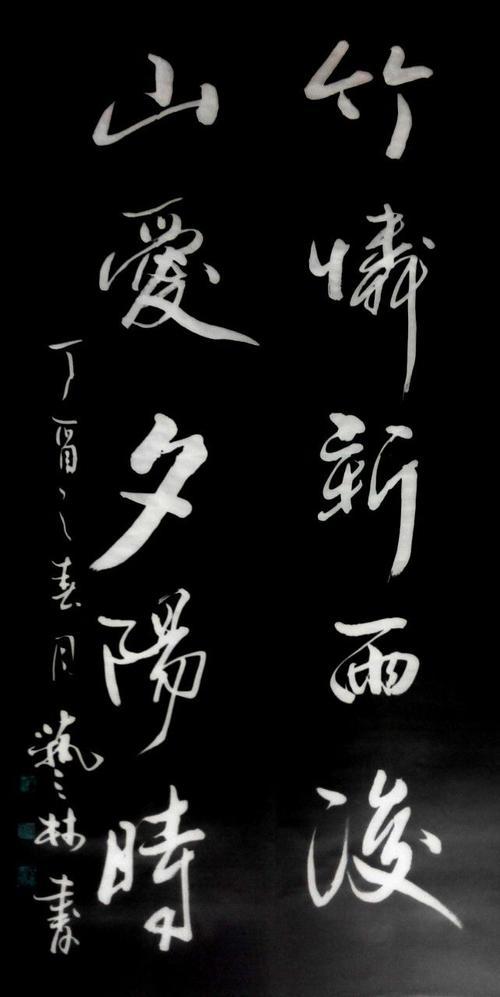 竹憐新雨後
山愛夕陽時
丁酉之春月藝林書